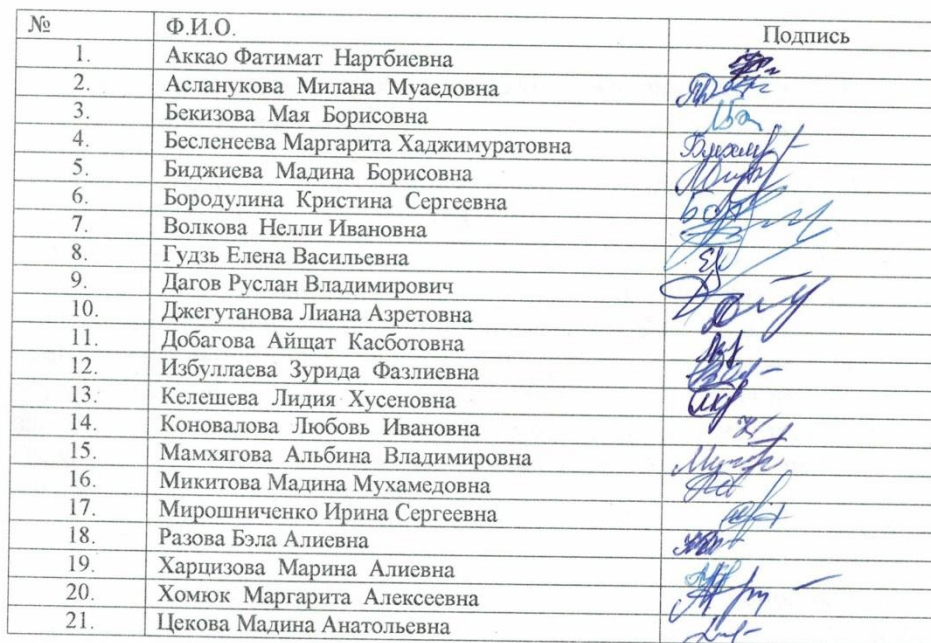 № Ф.И.О. Подпись
1. Аккао Фатимат Нартбиевна
2. Асланукова Милана Муаедовна
3. Бекизова Мая Борисовна
4. Бесленеева Маргарита Хаджимуратовна
5. Биджиева Мадина Борисовна
6. Бородулина Кристина Сергеевна
7. Волкова Нелли Ивановна
8. Гудзь Елена Васильевна
9. Дагов Руслан Владимирович
10. Джегутанова Лиана Азретовна
11. Добагова Айщат Касботовна
12. Избуллаева Зурида Фазлиевна
13. Келешева Лидия Хусеновна
14. Коновалова Любовь Ивановна
15. Мамхягова Альбина Владимировна
16. Микитова Мадина Мухамедовна
17. Мирошниченко Ирина Сергеевна
18. Разова Бэла Алиевна
19. Харцизова Марина Алиевна
20. Хомюк Маргарита Алексеевна
21. Цекова Мадина Анатольевна